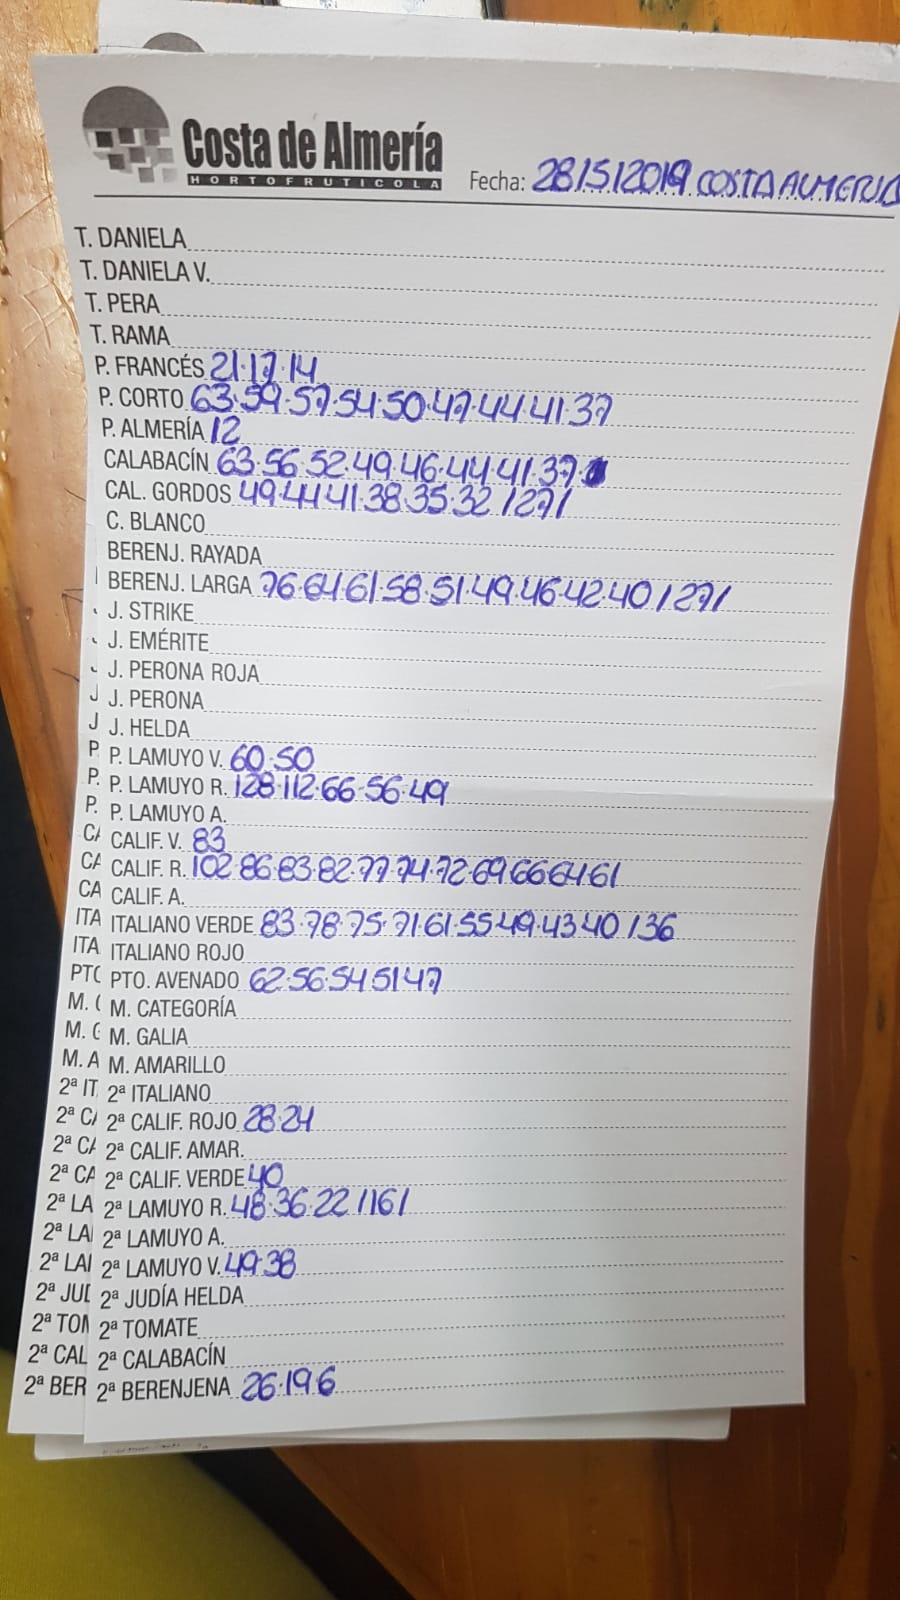 Costa de Almería
HORTOFRUTICOLA
Fecha: 28/5/2019 COSTA ALMERIA
T. DANIELA
T. DANIELA V.
T. PERA
T. RAMA
P. FRANCÉS 21·17·14
P. CORTO 63·59·57·54·50·47·44·41·37
P. ALMERÍA 12
CALABACÍN 63·56·52·49·46·44·41·37·
CAL. GORDOS 49·44·41·38·35·32 /27/
C. BLANCO
BERENJ. RAYADA
BERENJ. LARGA 76·64·61·58·51·49·46·42·40 /27/
J. STRIKE
J. EMÉRITE
J. PERONA ROJA
J J. PERONA
J J. HELDA
P. P. LAMUYO V. 60·50
P. P. LAMUYO R. 128·112·66·56·49
P. P. LAMUYO A.
CA CALIF. V. 83
CA CALIF. R. 102·86·83·82·77·74·72·69·66·64·61
CA CALIF. A.
ITA ITALIANO VERDE 83·78·75·71·61·55·49·43·40 /36
ITA ITALIANO ROJO
PTO PTO. AVENADO 62·56·54·51·47
M. C M. CATEGORÍA
M. G M. GALIA
M. A M. AMARILLO
2ª IT 2ª ITALIANO
2ª CA 2ª CALIF. ROJO 28·24
2ª CA 2ª CALIF. AMAR.
2ª CA 2ª CALIF. VERDE 40
2ª LA 2ª LAMUYO R. 48·36·22 /16/
2ª LA 2ª LAMUYO A.
2ª LA 2ª LAMUYO V. 49·38
2ª JUD 2ª JUDÍA HELDA
2ª TOM 2ª TOMATE
2ª CAL 2ª CALABACÍN
2ª BER 2ª BERENJENA 26·19·6